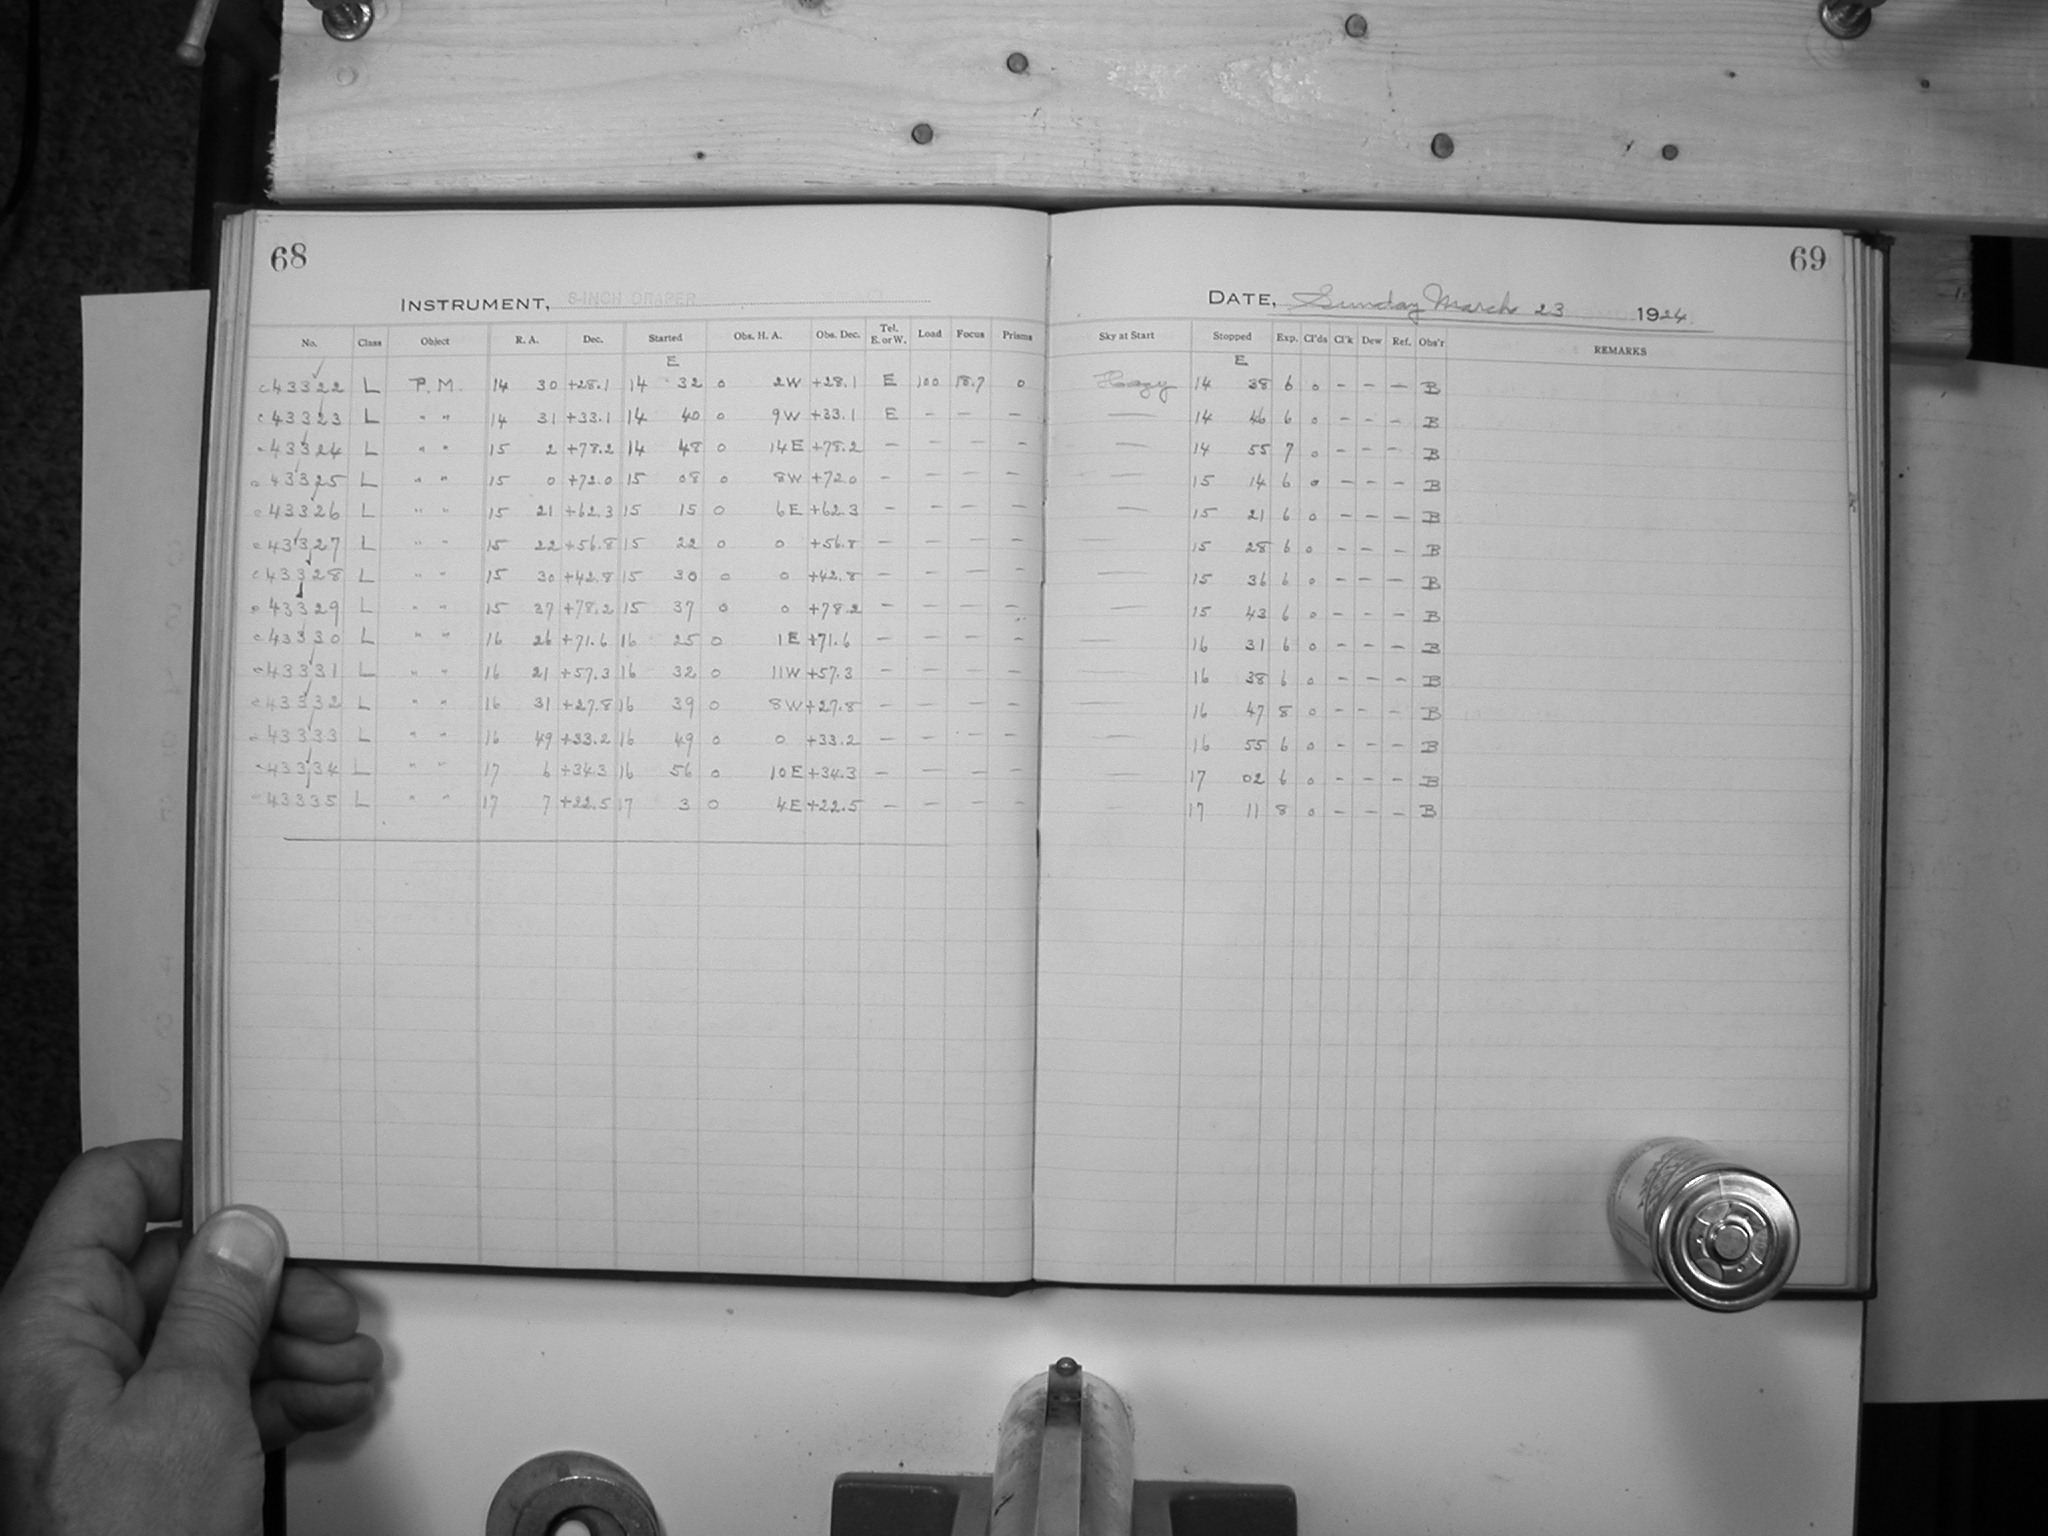 68
69
INSTRUMENT, 8-INCH DRAPER
DATE, Sunday March 23 1924
No. Class Object R. A. Dec. Started Obs. H. A. Obs. Dec. Tel. E. or W. Load Focus Prisms Sky at Start Stopped Exp. Cl'ds Cl'k Dew Ref. Obs'r REMARKS
E E
c43322 L P. M. 14 30 +28.1 14 32 0 2W +28.1 E 100 18.7 0 Hazy 14 38 6 0 - - - B
c43323 L " " 14 31 +33.1 14 40 0 9W +33.1 E - - - — 14 46 6 0 - - - B
c43324 L " " 15 2 +78.2 14 48 0 14E +78.2 - - - - — 14 55 7 0 - - - B
c43325 L " " 15 0 +72.0 15 08 0 8W +72.0 - - - - — 15 14 6 0 - - - B
c43326 L " " 15 21 +62.3 15 15 0 6E +62.3 - - - - — 15 21 6 0 - - - B
c43327 L " " 15 22 +56.8 15 22 0 0 +56.8 - - - - — 15 28 6 0 - - - B
c43328 L " " 15 30 +42.8 15 30 0 0 +42.8 - - - - — 15 36 6 0 - - - B
c43329 L " " 15 37 +78.2 15 37 0 0 +78.2 - - - - — 15 43 6 0 - - - B
c43330 L " " 16 26 +71.6 16 25 0 1E +71.6 - - - - — 16 31 6 0 - - - B
c43331 L " " 16 21 +57.3 16 32 0 11W +57.3 - - - - — 16 38 6 0 - - - B
c43332 L " " 16 31 +27.8 16 39 0 8W +27.8 - - - - — 16 47 8 0 - - - B
c43333 L " " 16 49 +33.2 16 49 0 0 +33.2 - - - - — 16 55 6 0 - - - B
c43334 L " " 17 6 +34.3 16 56 0 10E +34.3 - - - - — 17 02 6 0 - - - B
c43335 L " " 17 7 +22.5 17 3 0 4E +22.5 - - - - — 17 11 8 0 - - - B